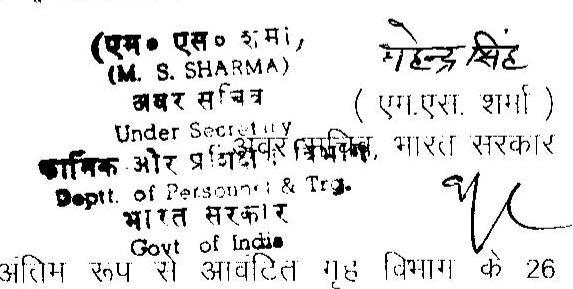 (एम० एस० शर्मा,
(M. S. SHARMA)
अवर सचिव
Under Secretary
कार्मिक और प्रशिक्षण विभाग
Deptt. of Personnel & Trg.
भारत सरकार
Govt of India
महेन्द्र सिंह
( एम.एस. शर्मा )
अवर सचिव, भारत सरकार
अंतिम रूप से आवंटित गृह विभाग के 26